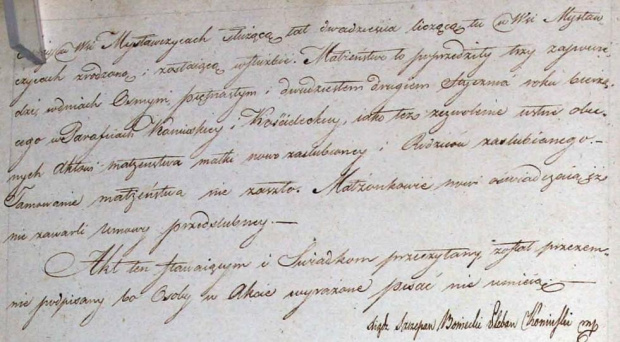 we Wsi Mysławczycach służącą lat dwadzieścia liczącą tu w Wsi Mysław
czycach zrodzoną i zostaiącą w służbie. Małżeństwo to poprzedziły trzy zapowie
dzi, w dniach Osmym, piętnastym i dwudziestem drugiem Stycznia roku bieżą
cego w Parafiach Koniuskiey i Kościeleckiey, iako też zezwolenie ustne obec
nych Aktowi małżeństwa matki nowo zaślubioney i Rodziców zaślubionego.—
Tamowanie małżeństwa nie zaszło. Małżonkowie nowi oświadczaią iż
nie zawarli umowy przedślubney.—
Akt ten stawaiącym i Świadkom przeczytany został przezem
nie podpisany bo Osoby w Akcie wyrażone pisać nie umieią.—
Szczepan Pleban Koniuski mp